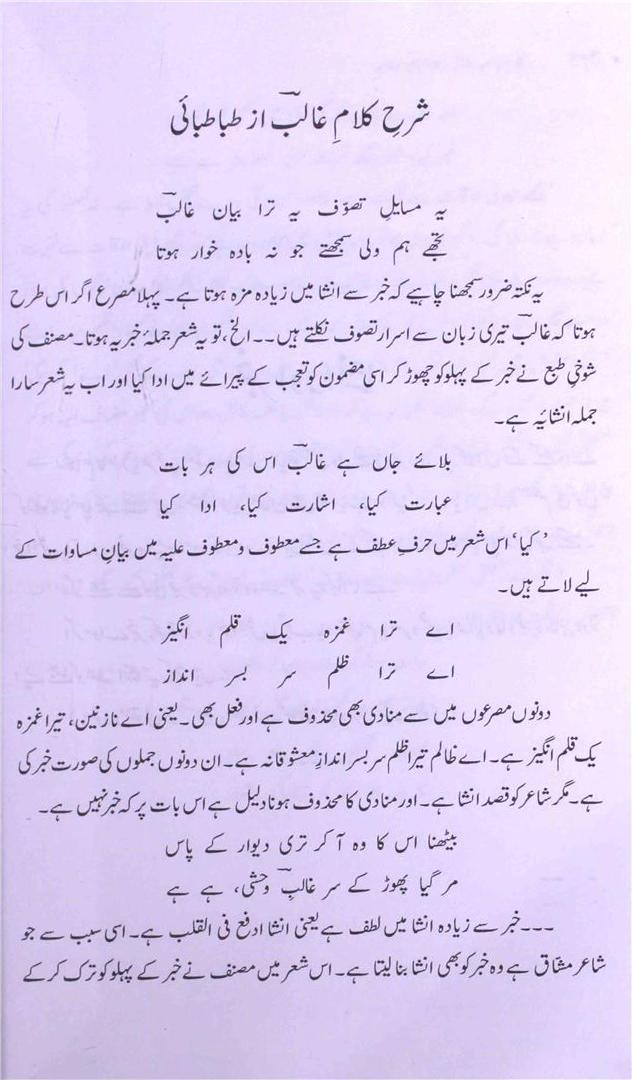 شرحِ کلامِ غالبؔ از طباطبائی
یہ مسایلِ تصوّف یہ ترا بیان غالبؔ
تجھے ہم ولی سمجھتے جو نہ بادہ خوار ہوتا
یہ نکتہ ضرور سمجھنا چاہیے کہ خبر سے انشا میں زیادہ مزہ ہوتا ہے۔ پہلا مصرع اگر اس طرح
ہوتا کہ غالبؔ تیری زبان سے اسرارِ تصوف نکلتے ہیں۔۔ الخ، تو یہ شعر جملۂ خبریہ ہوتا۔ مصنف کی
شوخیِ طبع نے خبر کے پہلو کو چھوڑ کر اسی مضمون کو تعجب کے پیرائے میں ادا کیا اور اب یہ شعر سارا
جملہ انشائیہ ہے۔
بلائے جاں ہے غالبؔ اس کی ہر بات
عبارت کیا، اشارت کیا، ادا کیا
’کیا‘ اس شعر میں حرفِ عطف ہے جسے معطوف و معطوف علیہ میں بیانِ مساوات کے
لیے لاتے ہیں۔
اے ترا غمزہ یک قلم انگیز
اے ترا ظلم سر بسر انداز
دونوں مصرعوں میں سے منادیٰ بھی محذوف ہے اور فعل بھی۔ یعنی اے نازنین، تیرا غمزہ
یک قلم انگیز ہے۔ اے ظالم تیرا ظلم سربسر اندازِ معشوقانہ ہے۔ ان دونوں جملوں کی صورت خبر کی
ہے۔ مگر شاعر کو قصد انشا ہے۔ اور منادیٰ کا محذوف ہونا دلیل ہے اس بات پر کہ خبر نہیں ہے۔
بیٹھنا اس کا وہ آ کر تری دیوار کے پاس
مر گیا پھوڑ کے سر غالبِؔ وحشی، ہے ہے
۔۔۔ خبر سے زیادہ انشا میں لطف ہے یعنی انشا اوقع فی القلب ہے۔ اسی سبب سے جو
شاعر مشّاق ہے وہ خبر کو بھی انشا بنا لیتا ہے۔ اس شعر میں مصنف نے خبر کے پہلو کو ترک کر کے